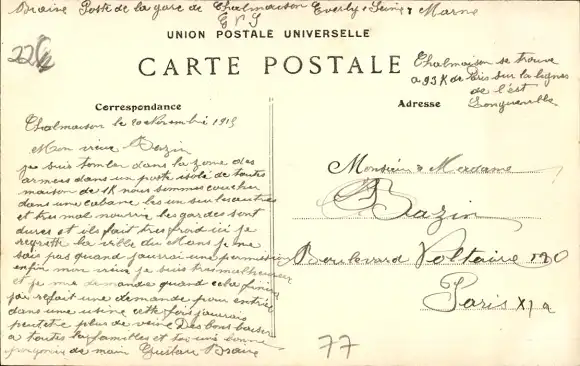 Braire Poste de la gare de Chalmaison Everly Seine & Marne
E V S
UNION POSTALE UNIVERSELLE
CARTE POSTALE
22
Chalmaison se trouve
a 93 K de Paris sur la lignes
de l'est
Longueville
Correspondance
Adresse
Chalmaison le 20 Novembre 1915
Mon vieux Bazin
je suis tomber dans la zone des
armées dans un poste isolé de toutes
maison de 1K nous sommes coucher
dans une cabane les un sur les autres
et tres mal nourrie les gardes sont
dures et il fait tres froid ici je
regrette la ville du Mans je ne
sais pas quand j'aurai une permission
enfin mon vieux je suis tres malheureux
et je me demande quand cela finira
j'ai refait une demande pour entrer
dans une usine cette fois j'aurais
peutetre plus de veine Des bons baiser
a toutes la familles et toi une bonne
poignee de main Gustave Braire
Monsieur & Madame
Bazin
Boulevard Voltaire 130
Paris XI a
77